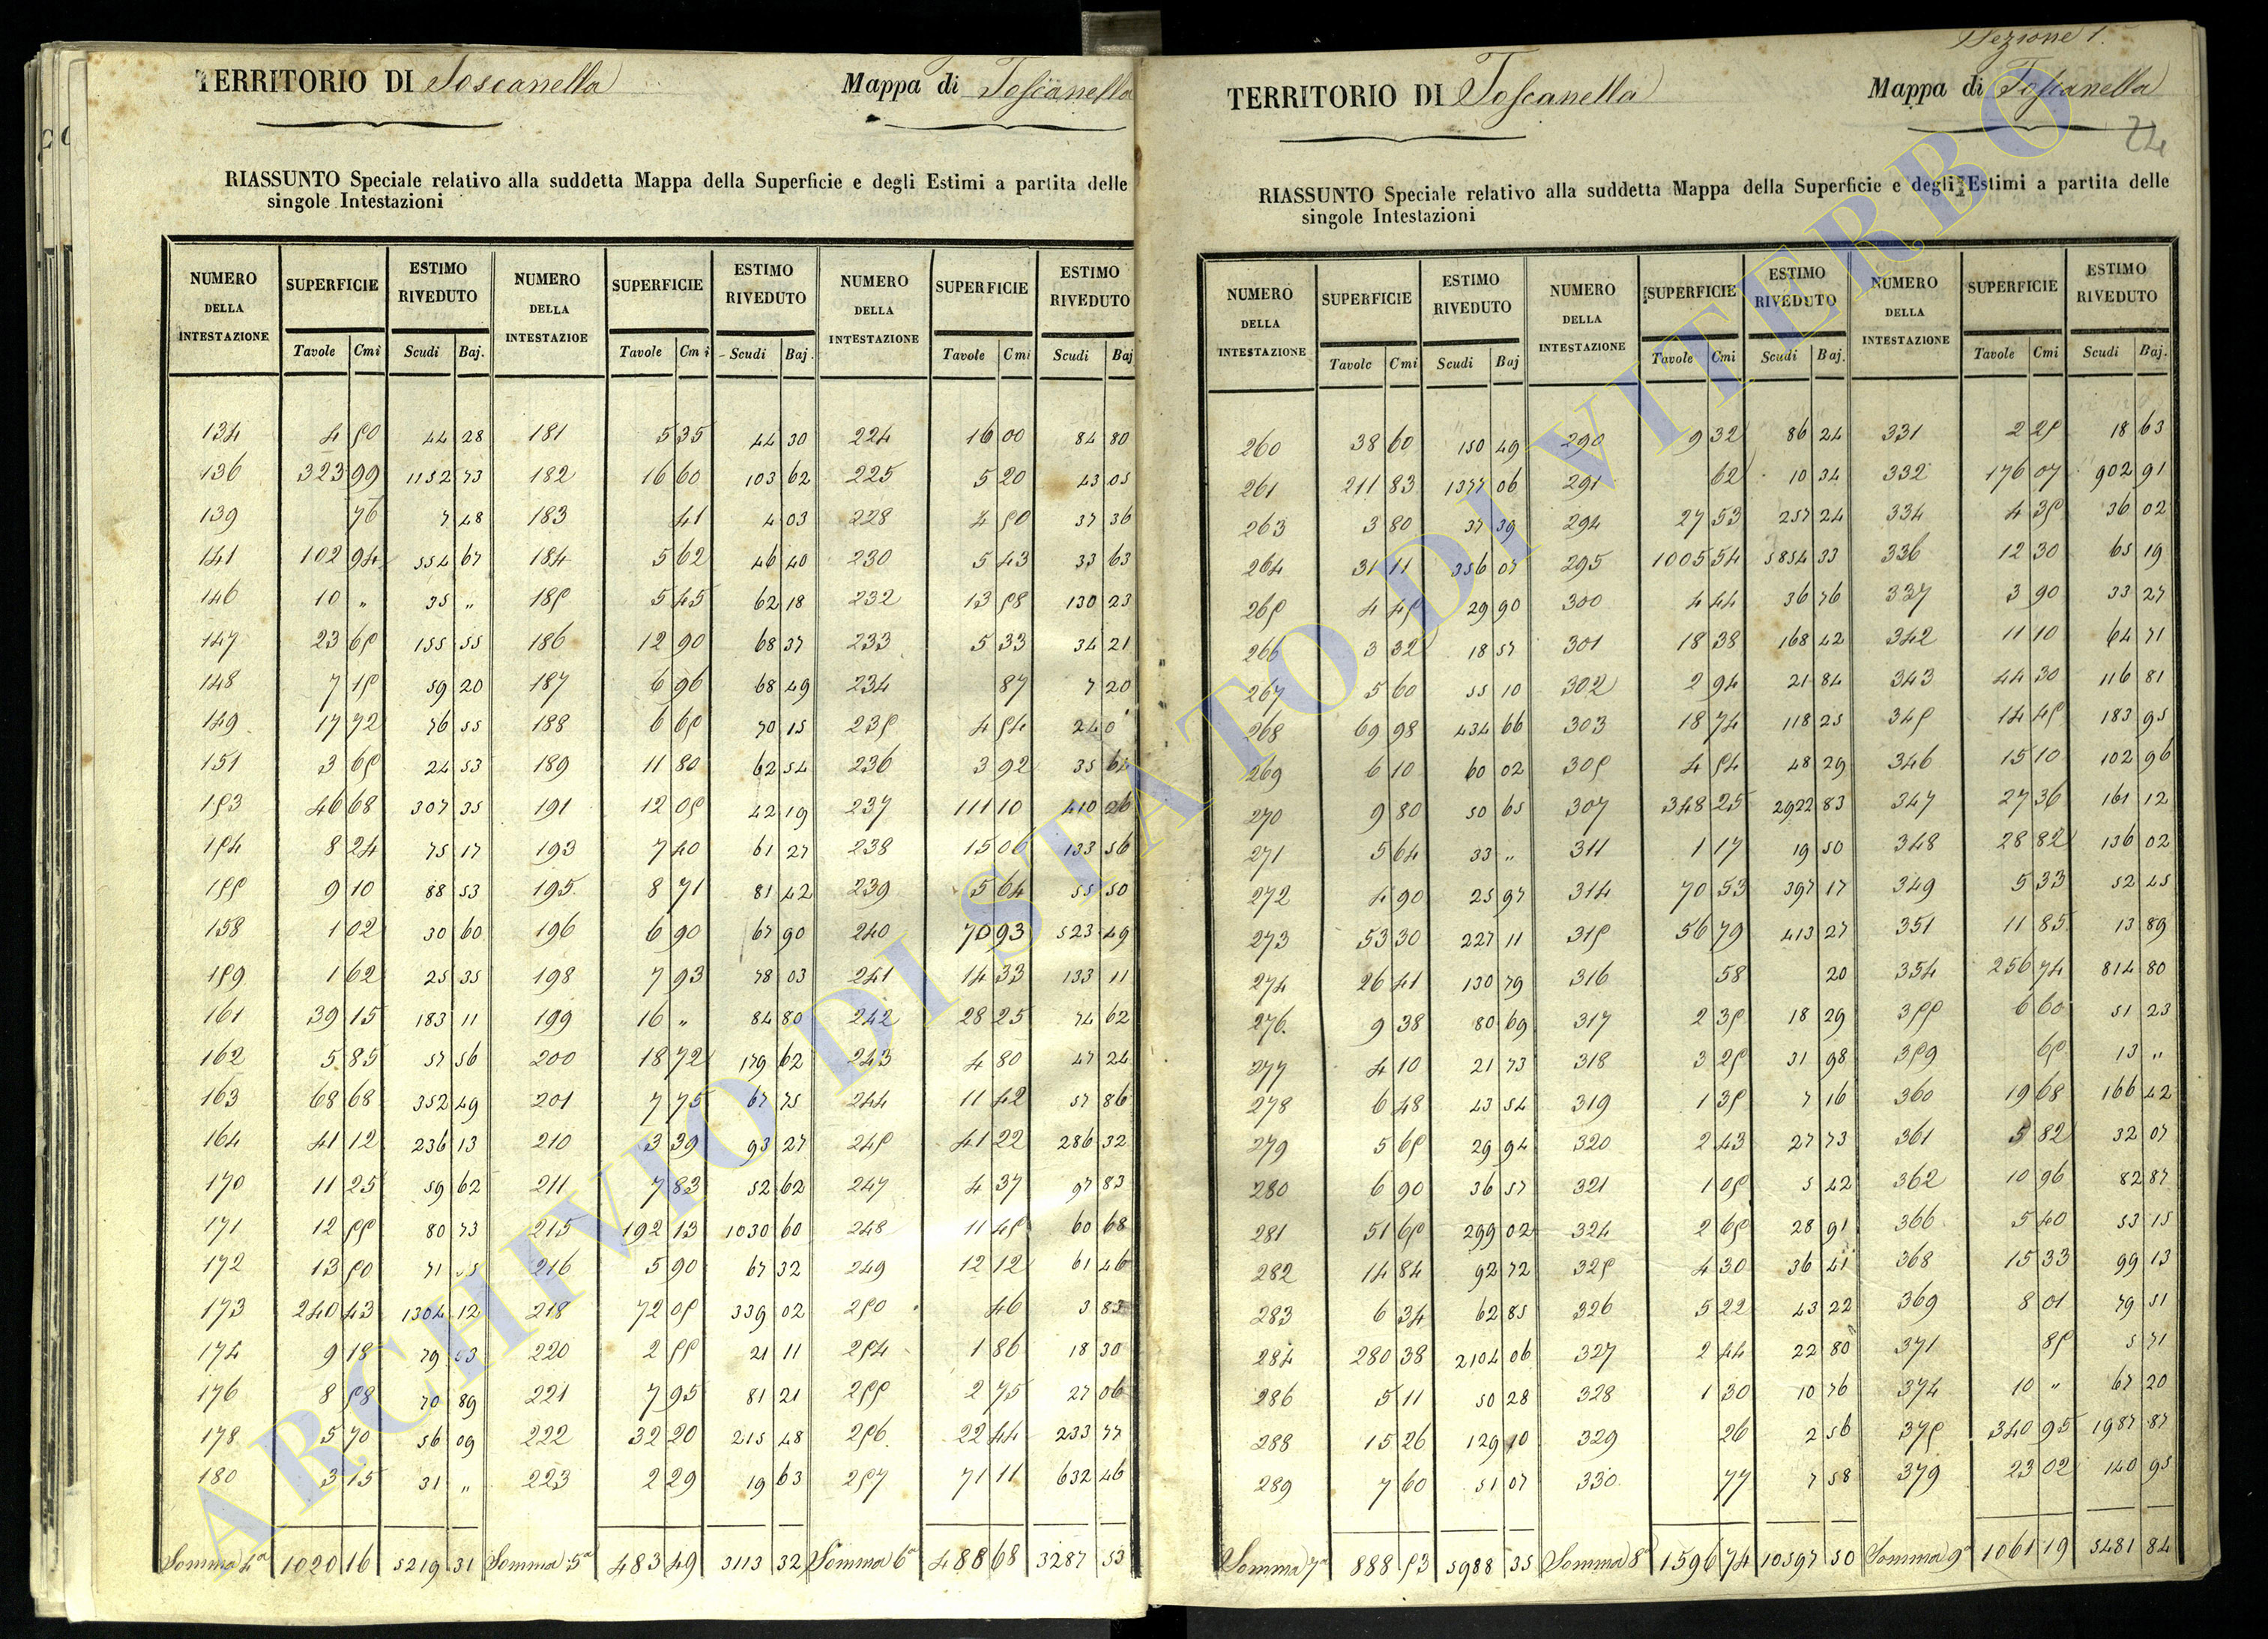 TERRITORIO DI Toscanella Mappa di Toscanella
RIASSUNTO Speciale relativo alla suddetta Mappa della Superficie e degli Estimi a partita delle
singole Intestazioni
NUMERO DELLA INTESTAZIONE SUPERFICIE ESTIMO RIVEDUTO NUMERO DELLA INTESTAZIOE SUPERFICIE ESTIMO RIVEDUTO NUMERO DELLA INTESTAZIONE SUPERFICIE ESTIMO RIVEDUTO
Tavole Cmi Scudi Baj. Tavole Cmi Scudi Baj. Tavole Cmi Scudi Baj
134 4 50 44 28 181 5 35 44 30 224 16 00 84 80
136 323 99 1152 73 182 16 60 103 62 225 5 20 43 05
139 76 7 48 183 41 4 03 228 4 50 37 36
141 102 94 554 67 184 5 62 46 40 230 5 43 33 63
146 10 „ 35 „ 185 5 45 62 18 232 13 58 130 23
147 23 65 155 55 186 12 90 68 37 233 5 33 34 21
148 7 15 59 20 187 6 96 68 49 234 87 7 20
149 17 72 76 55 188 6 65 70 15 235 4 54 24 0
151 3 65 24 53 189 11 80 62 54 236 3 92 35 64
153 46 68 307 35 191 12 05 42 19 237 111 10 410 26
154 8 24 75 17 193 7 40 61 27 238 15 06 133 56
155 9 10 88 53 195 8 71 81 42 239 5 64 55 50
158 1 02 30 60 196 6 90 67 90 240 70 93 523 49
159 1 62 25 35 198 7 93 78 03 241 14 33 133 11
161 39 15 183 11 199 16 „ 84 80 242 28 25 74 62
162 5 85 57 56 200 18 72 179 62 243 4 80 47 24
163 68 68 352 49 201 7 75 67 75 244 11 42 57 86
164 41 12 236 13 210 3 39 93 27 245 41 22 286 32
170 11 25 59 62 211 7 83 52 62 247 4 37 97 83
171 12 55 80 73 215 192 13 1030 60 248 11 45 60 68
172 13 50 71 216 5 90 67 32 249 12 12 61 46
173 240 43 1304 12 218 72 05 339 02 250 46 3 83
174 9 18 79 53 220 2 55 21 11 254 1 86 18 30
176 8 58 70 89 221 7 95 81 21 255 2 75 27 06
178 5 70 56 09 222 32 20 215 48 256 22 44 233 77
180 3 15 31 „ 223 2 29 19 63 257 71 11 632 46
Somma 4a 1020 16 5219 31 Somma 5a 483 49 3113 32 Somma 6a 488 68 3287 53
Sezione 1.
TERRITORIO DI Toscanella Mappa di Toscanella
24
RIASSUNTO Speciale relativo alla suddetta Mappa della Superficie e degli Estimi a partita delle
singole Intestazioni
NUMERO DELLA INTESTAZIONE SUPERFICIE ESTIMO RIVEDUTO NUMERO DELLA INTESTAZIONE SUPERFICIE ESTIMO RIVEDUTO NUMERO DELLA INTESTAZIONE SUPERFICIE ESTIMO RIVEDUTO
Tavole Cmi Scudi Baj Tavole Cmi Scudi Baj. Tavole Cmi Scudi Baj.
260 38 60 150 49 290 9 32 86 24 331 2 25 18 63
261 211 83 1377 06 291 62 10 34 332 176 07 902 91
263 3 80 37 39 294 27 53 257 24 334 4 35 36 02
264 31 11 356 07 295 1005 54 5854 33 336 12 30 65 19
265 4 45 29 90 300 4 44 36 76 337 3 90 33 27
266 3 32 18 57 301 18 38 168 42 342 11 10 64 71
267 5 60 55 10 302 2 94 21 84 343 44 30 116 81
268 69 98 434 66 303 18 74 118 25 345 14 45 183 95
269 6 10 60 02 305 4 54 48 29 346 15 10 102 96
270 9 80 50 65 307 348 25 2922 83 347 27 36 161 12
271 5 64 33 „ 311 1 17 19 50 348 28 82 136 02
272 4 90 25 97 314 70 53 397 17 349 5 33 52 45
273 53 30 227 11 315 56 79 413 27 351 11 85 13 89
274 26 41 130 79 316 58 20 354 256 74 814 80
276 9 38 80 69 317 2 35 18 29 355 6 60 51 23
277 4 10 21 73 318 3 25 31 98 359 65 13 „
278 6 48 43 54 319 1 35 7 16 360 19 68 166 42
279 5 65 29 94 320 2 43 27 73 361 5 82 32 07
280 6 90 36 57 321 1 05 5 42 362 10 96 82 87
281 51 65 299 02 324 2 65 28 91 366 5 40 53 15
282 14 84 92 72 325 4 30 36 41 368 15 33 99 13
283 6 34 62 85 326 5 22 43 22 369 8 01 79 51
284 280 38 2104 06 327 2 44 22 80 371 85 5 71
286 5 11 50 28 328 1 30 10 76 374 10 „ 67 20
288 15 26 129 10 329 26 2 56 375 340 95 1987 87
289 7 60 51 07 330 77 7 58 379 23 02 140 95
Somma 7a 888 53 5988 35 Somma 8a 1596 74 10597 50 Somma 9a 1061 19 5481 84
ARCHIVIO DI STATO DI VITERBO